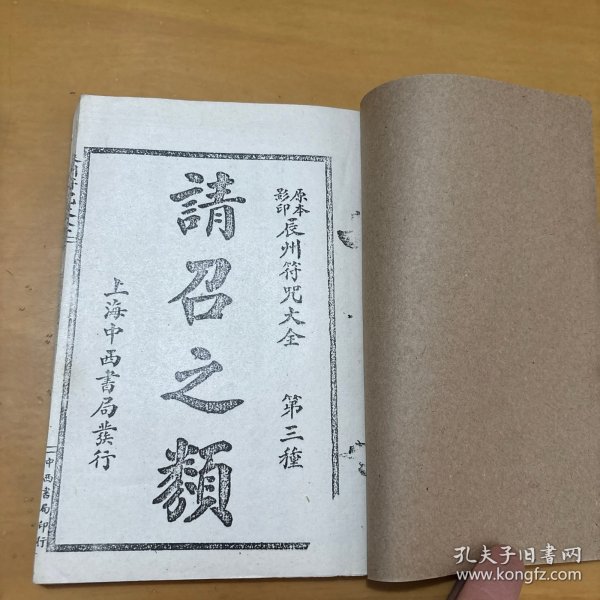 原本
影印
辰州符咒大全 第三種
請召之類
上海中西書局發行
中西書局印行
孔夫子旧书网
www.kongfz.com